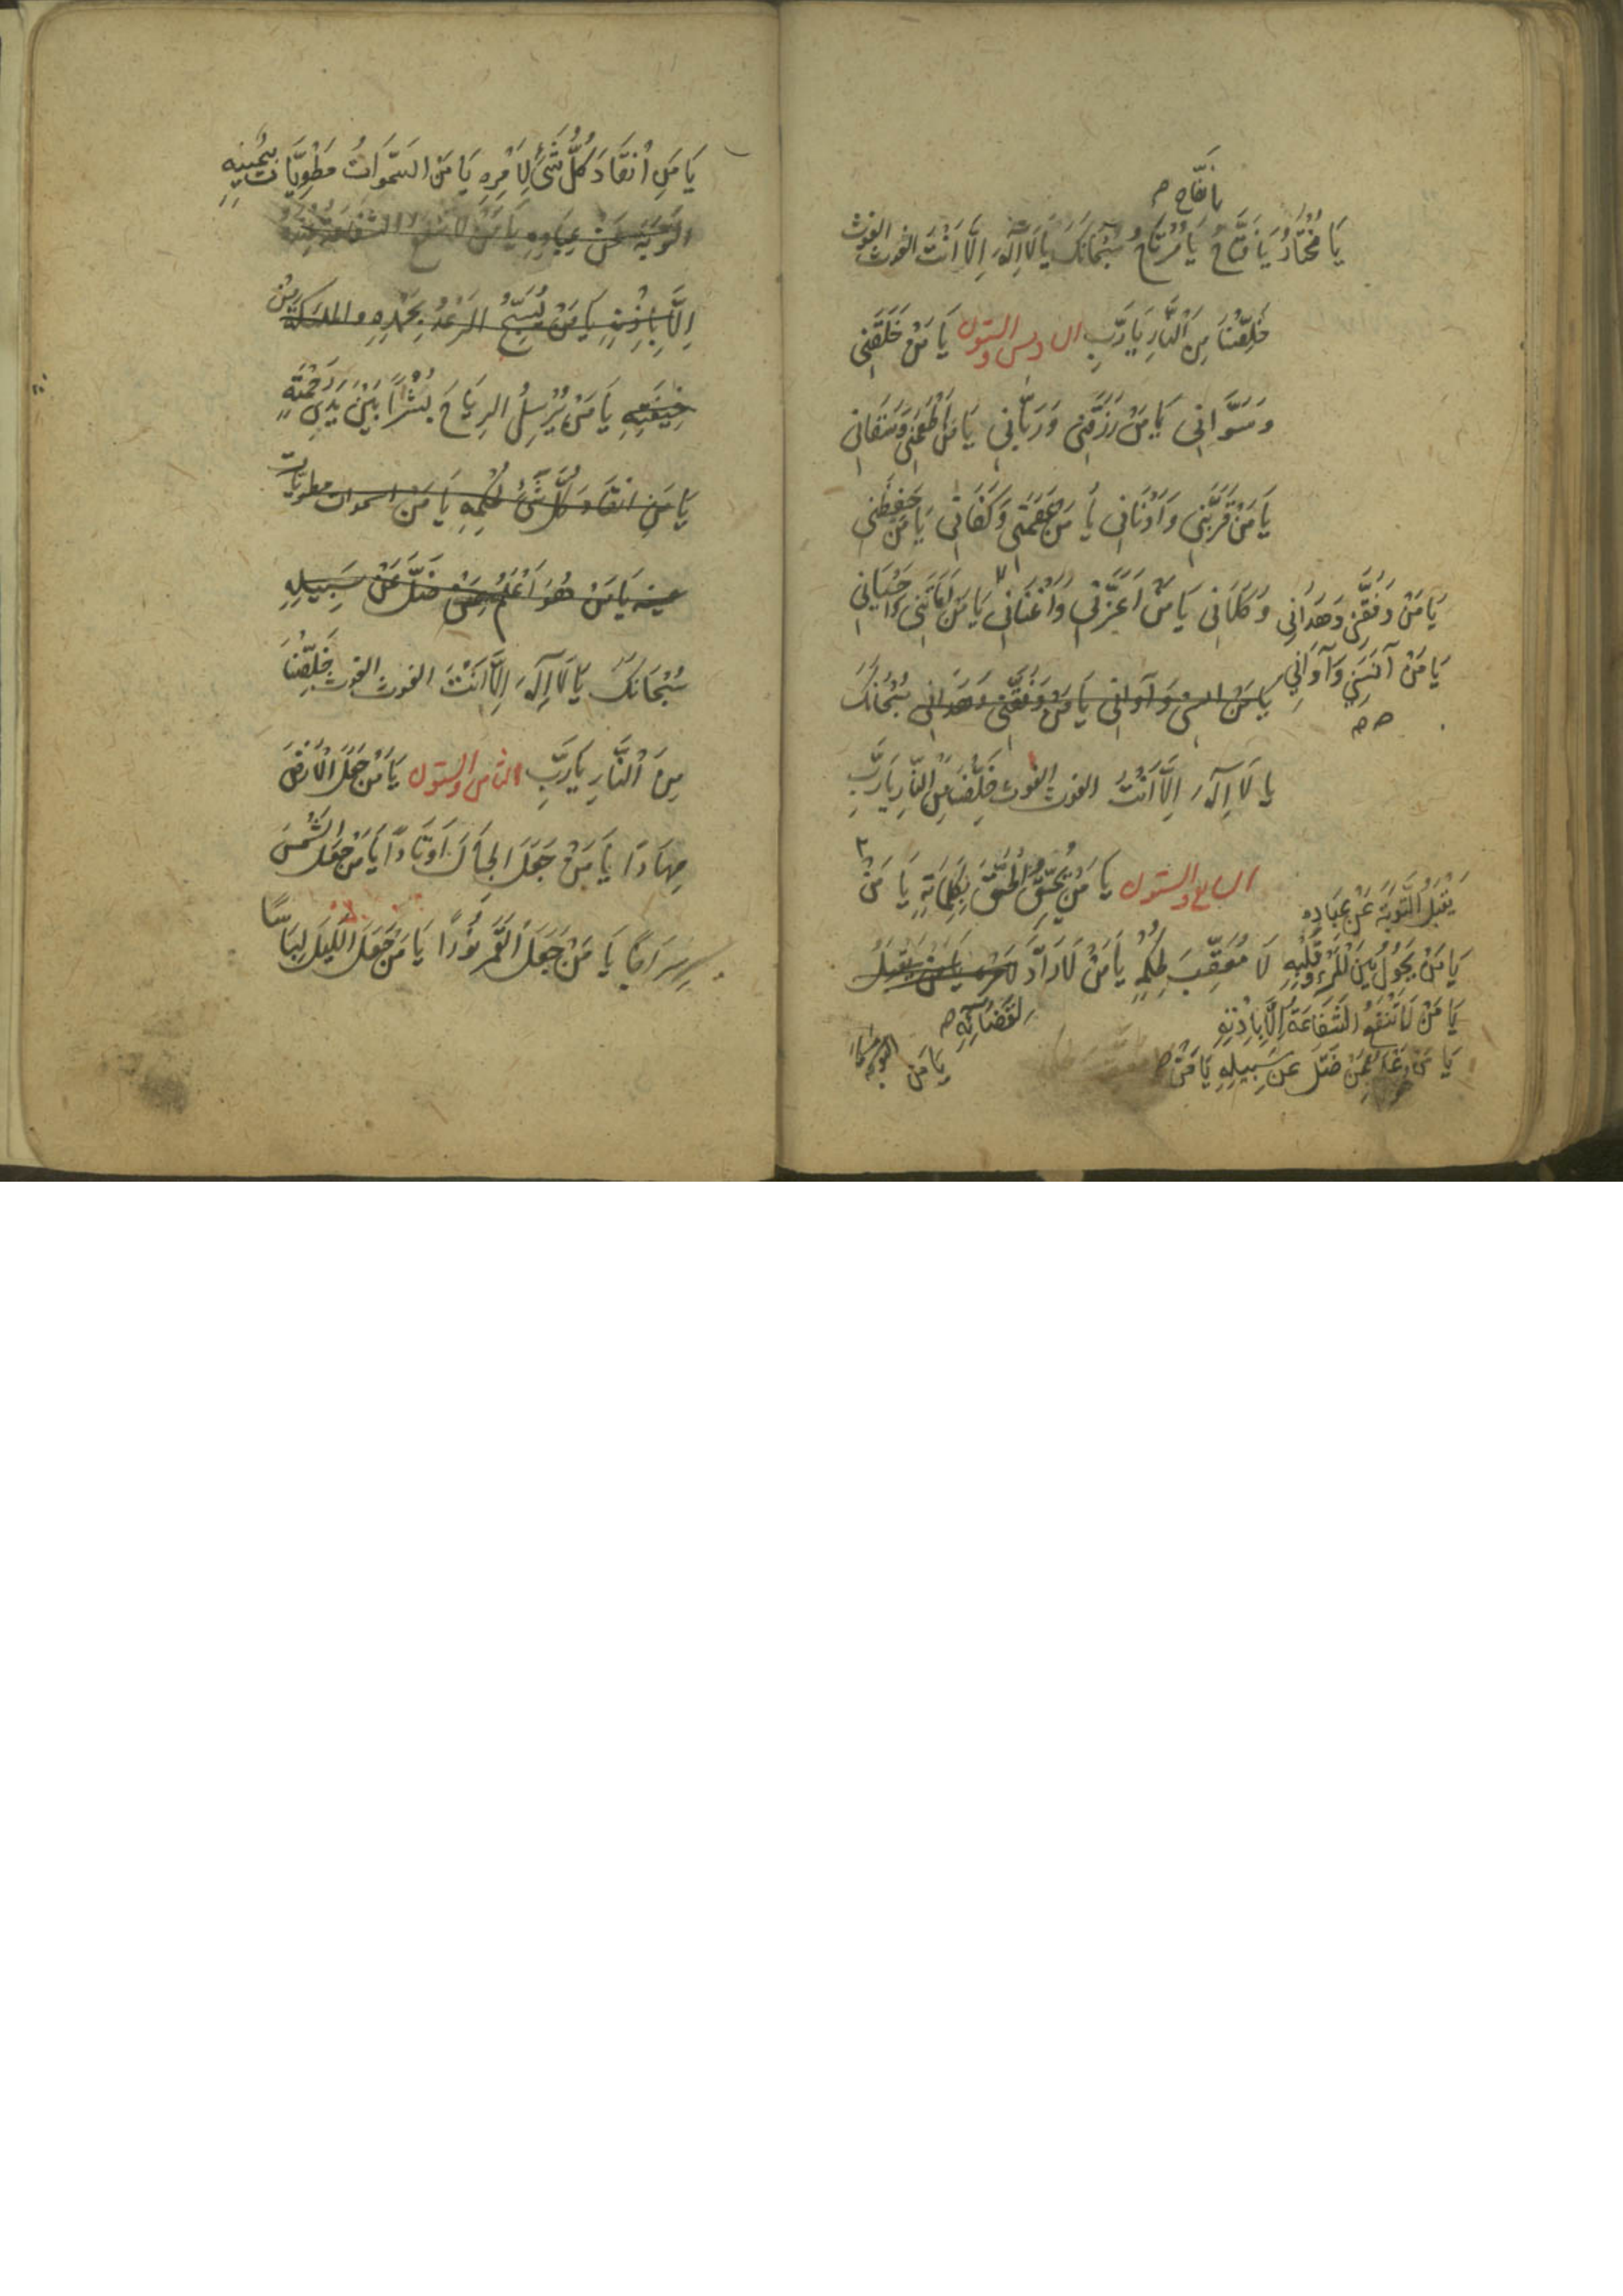 يا نفّاح
يَا مُخْتَارُ يَا فَتَّاحُ يَا مُرْتَاحُ سُبْحَانَكَ يَا لَا اِلٰهَ اِلَّا اَنْتَ الغوث الغوث
خَلِّصْنَا مِنَ النَّارِ يَا رَبِّ السادس والستون يَا مَنْ خَلَقَنِي
وَسَوَّانِي يَا مَنْ رَزَقَنِي وَرَبَّانِي يَا مَنْ اَطْعَمَنِي وَسَقَانِي
يَا مَنْ قَرَّبَنِي وَاَدْنَانِي يَا مَنْ عَصَمَنِي وَكَفَانِي يَا مَنْ حَفِظَنِي
وَكَلَانِي يَا مَنْ اَعَزَّنِي وَاَغْنَانِي يَا مَنْ اَمَاتَنِي وَاَحْيَانِي
يَا مَنْ وَفَّقَنِي وَهَدَانِي
يَا مَنْ آنَسَنِي وَآوَانِي
يا مَنْ انسنى وَآوانِي يَا مَنْ وَفَّقَنِي وَهَدَانِي سُبْحَانَكَ
يا لَا اِلٰهَ اِلَّا اَنْتَ الغوث الغوث خَلِّصْنَا مِنَ النَّارِ يَا رَبِّ
السابع والستون يَا مَنْ يُحِقُّ الْحَقَّ بِكَلِمَاتِهِ يَا مَنْ
يَقْبَلُ التَّوْبَةَ عَنْ عِبَادِهِ
يَا مَنْ يَحُولُ بَيْنَ الْمَرْءِ وَقَلْبِهِ
لَا مُعَقِّبَ لِحُكْمِهِ يَا مَنْ لَا رَادَّ يَا مَنْ يَقْبَلُ
لِقَضَائِهِ
يَا مَنْ لَا تَنْفَعُ الشَّفَاعَةُ اِلَّا بِاِذْنِهِ
ضَلَّ عَنْ سَبِيلِهِ يَا مَنْ
يَا مَنْ
يَا مَنِ انْقَادَ كُلُّ شَيْءٍ لِاَمْرِهِ يَا مَنِ السَّمٰوَاتُ مَطْوِيَّاتٌ بِيَمِينِهِ
التَّوْبَةَ عَنْ عِبَادِهِ يَا مَنْ لَا تَنْفَعُ الشَّفَاعَةُ
اِلَّا بِاِذْنِهِ يَا مَنْ يُسَبِّحُ الرَّعْدُ بِحَمْدِهِ والملئكة مِنْ
خِيفَتِهِ يَا مَنْ يُرْسِلُ الرِيَاحَ بُشْراً بَيْنَ يَدَيْ رَحْمَتِهِ
يَا مَنِ انقَادَ كُلُّ شَيْءٍ لحُكْمِهِ يَا مَنِ السموات مطويات
يَا مَنْ هُوَ اَعْلَمُ بِمَنْ ضَلَّ عَنْ سَبِيلِهِ
سُبْحَانَكَ يَا لَا اِلٰهَ اِلَّا اَنْتَ الغوث الغوث خَلِّصْنَا
مِنَ النَّارِ يَا رَبِّ الثامن والستون يَا مَنْ جَعَلَ الْاَرْضَ
مِهَادًا يَا مَنْ جَعَلَ الْجِبَالَ اَوْتَادًا يَا مَنْ جَعَلَ الشَّمْسَ
سِرَاجًا يَا مَنْ جَعَلَ الْقَمَرَ نُورًا يَا مَنْ جَعَلَ اللَّيْلَ لِبَاسًا